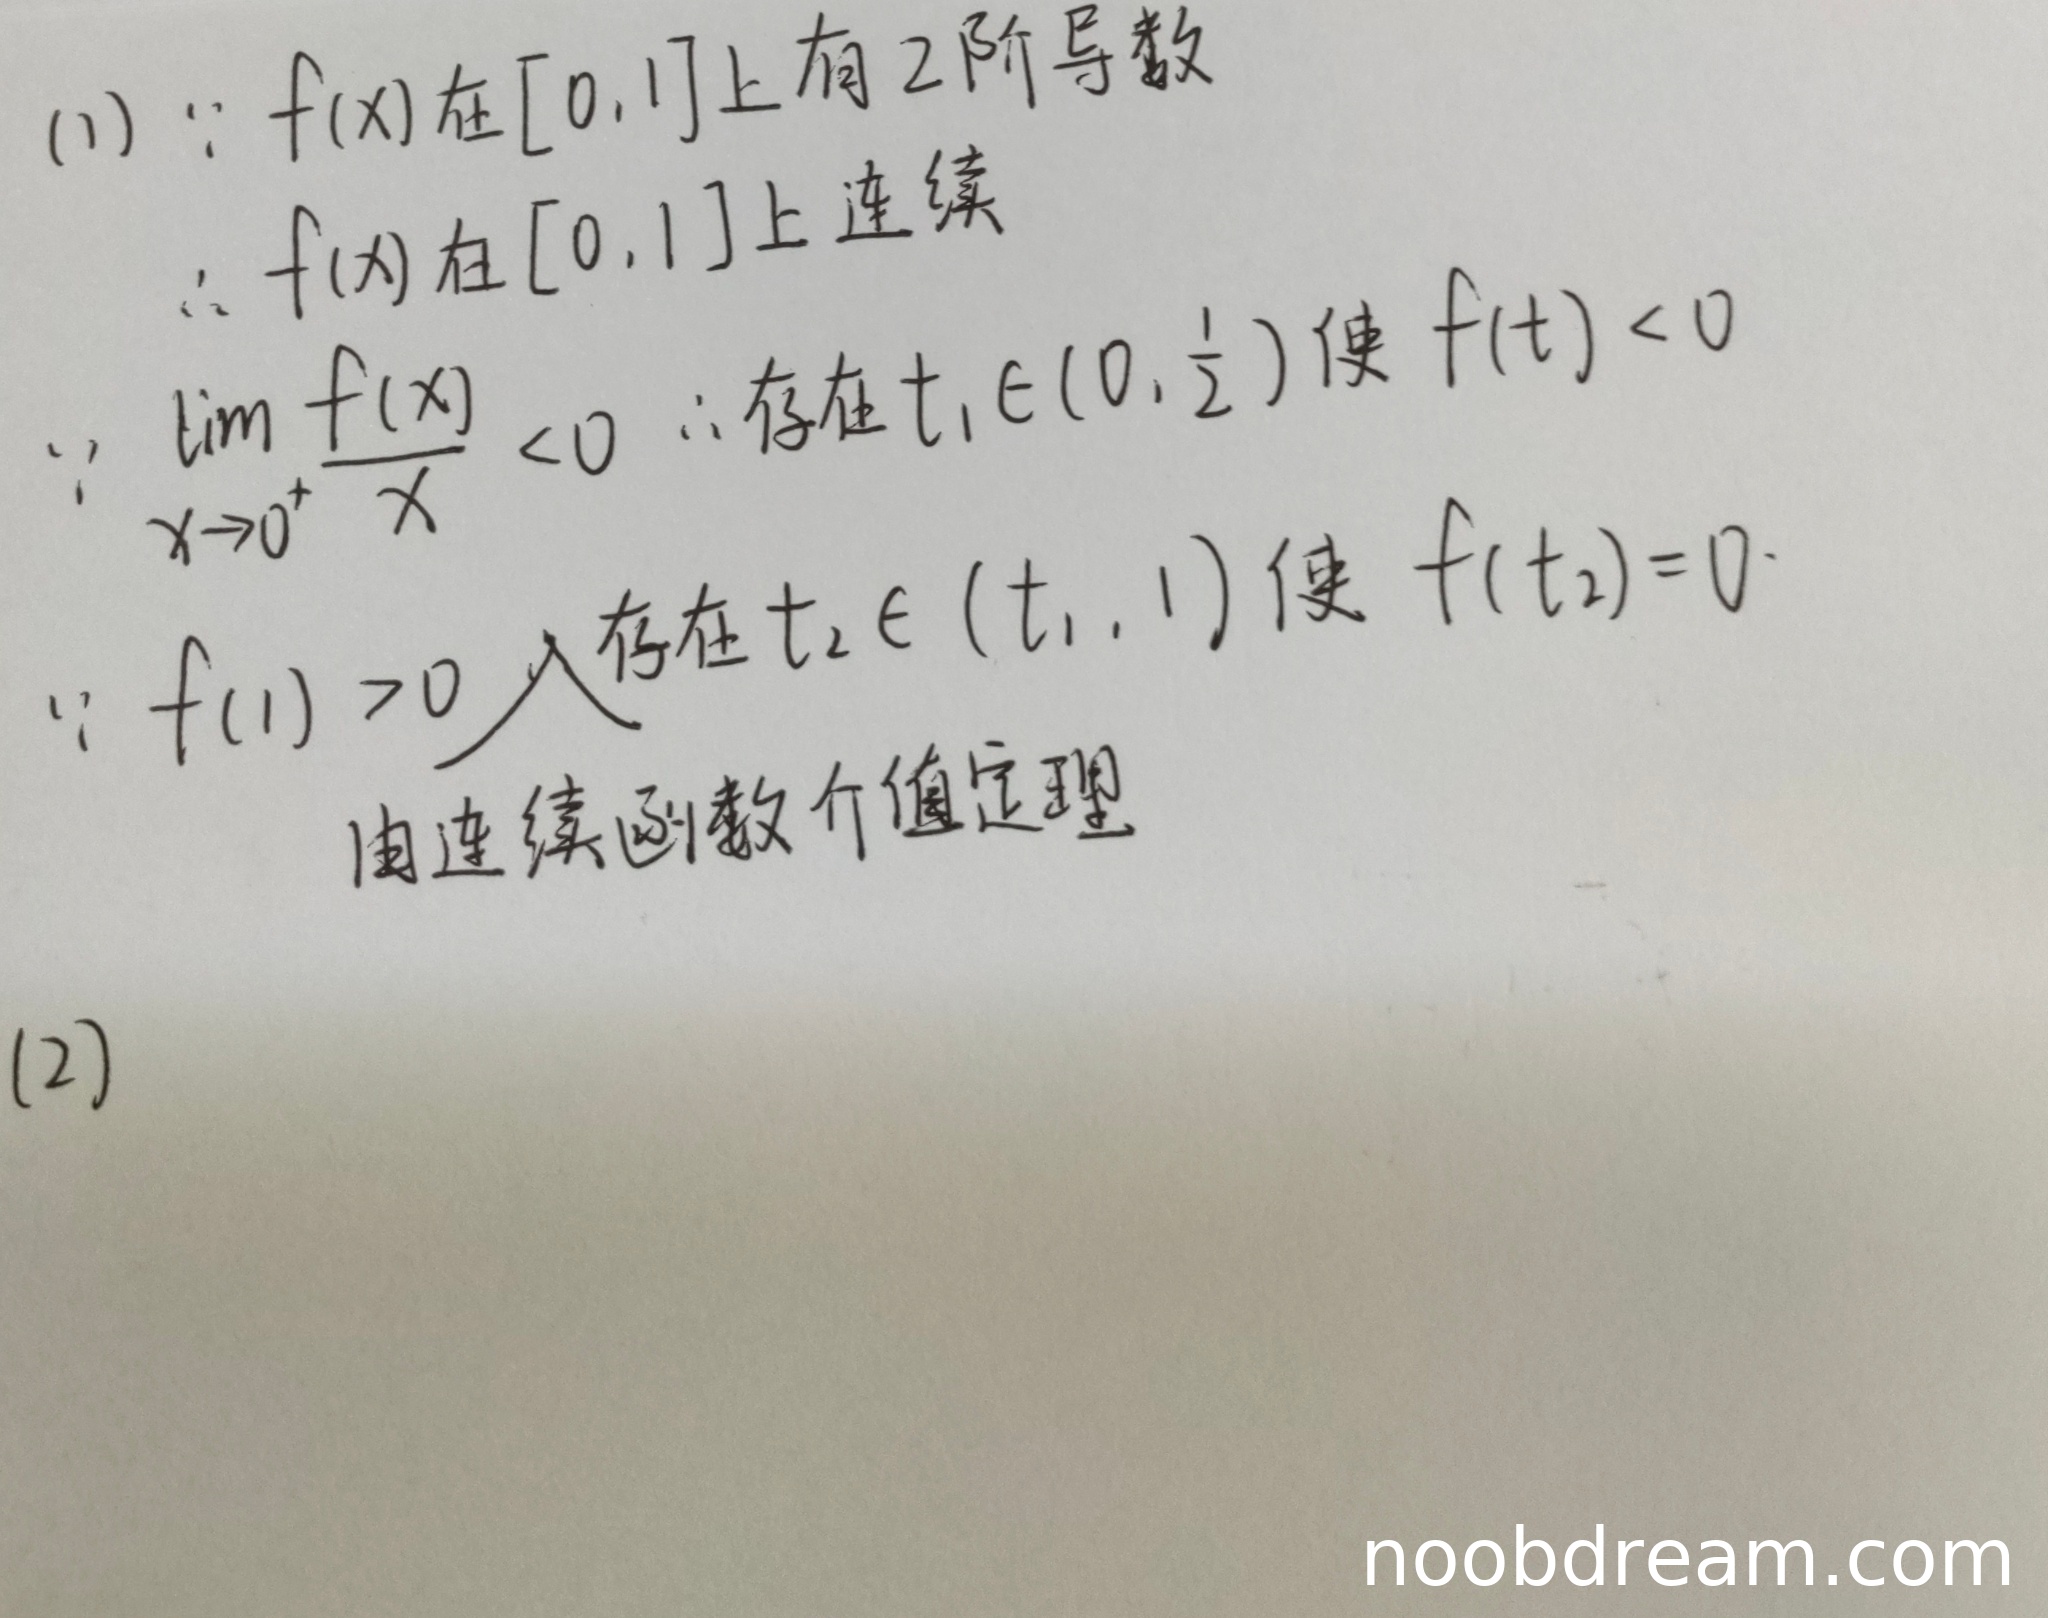 (1) ∵ f(x)在[0,1]上有2阶导数
∴ f(x)在[0,1]上连续
∵ lim x→0⁺ f(x)/x <0 ∴存在t₁∈(0,1/2)使 f(t)<0
∵ f(1)>0 存在t₂∈(t₁,1)使 f(t₂)=0.
由连续函数介值定理
(2)
noobdream.com